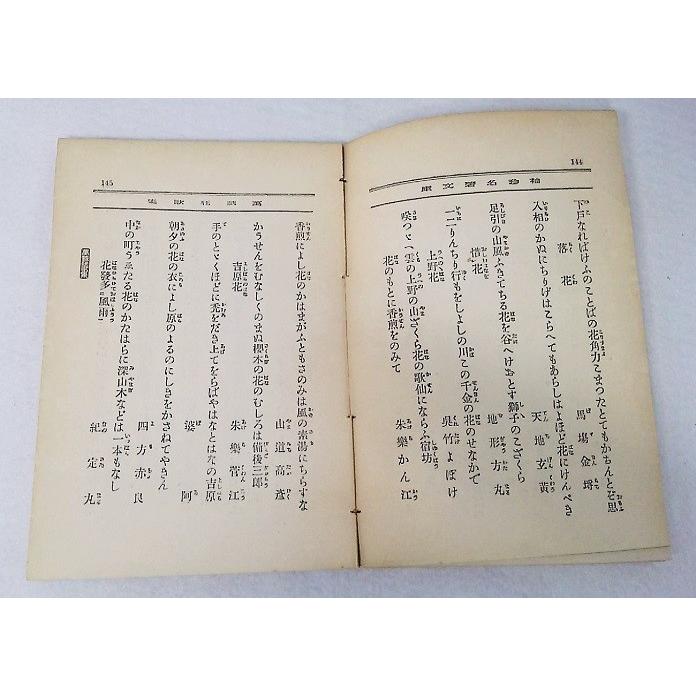 144
袖珍名著文庫
下戸なればけふのことばの花角力こまつたとてもかちんとぞ思
馬場金埒
落花
入相のかねにちりげはこらへてもあらしはよほど花にけんべき
天地玄黄
足引の山風ふきてちる花を谷へけおとす獅子のこざくら
地形方丸
惜花
一二りんちり行もをしよしの川この千金の花のせなかで
呉竹よぼけ
上野花
咲つゞく雲の上野の山ざくら花の歌仙にならふ宿坊
朱樂かん江
花のもとに香煎をのみて
145
萬載狂歌集
香煎によし花のかはまがふともさのみは風の素湯にちらすな
山道高彦
かうせんをむなしくのまぬ櫻木の花のむしろは備後三郎
朱樂菅江
吉原花
手のとゞくほどに禿をだき上てをらばやはなとはなの吉原
婆阿
朝夕の花の衣によし原のよるのにしきをかさねてやきん
四方赤良
中の町うゑたる花のかたはらに深山木などは一本もなし
紀定丸
花發多風雨